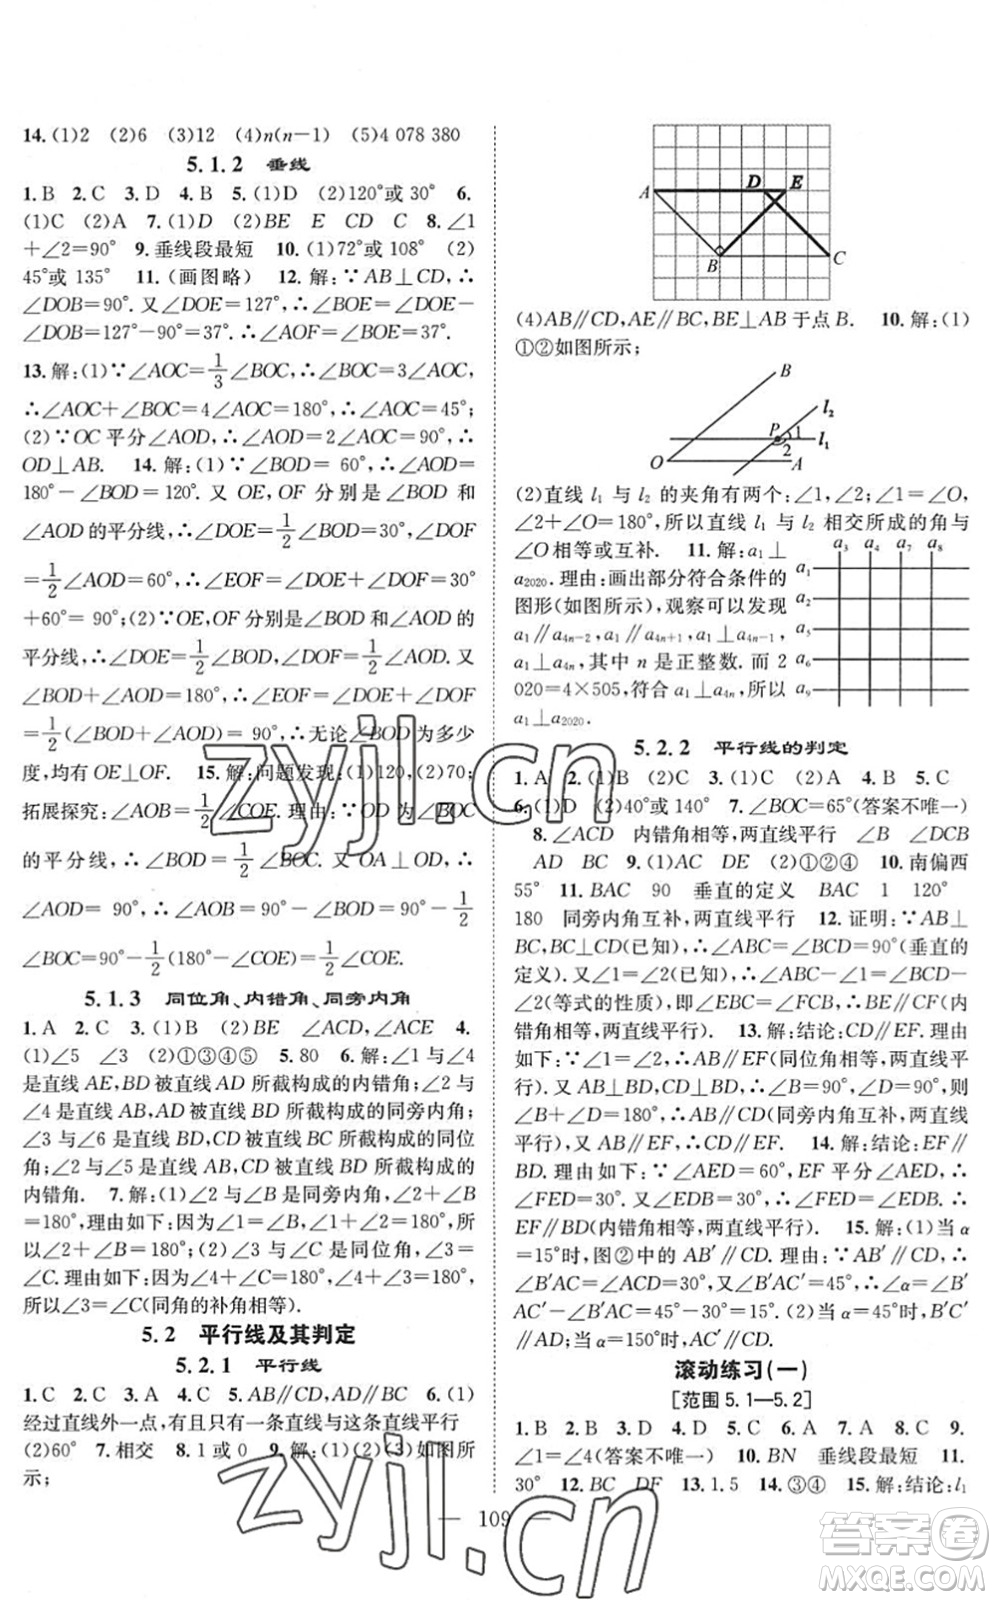 14.(1)2 (2)6 (3)12 (4)n(n−1) (5)4 078 380
5.1.2 垂线
1.B 2.C 3.D 4.B 5.(1)D (2)120°或30° 6.
(1)C (2)A 7.(1)D (2)BE E CD C 8.∠1
+∠2=90° 9.垂线段最短 10.(1)72°或108° (2)
45°或135° 11.(画图略) 12.解:∵AB⊥CD,∴
∠DOB=90°.又∠DOE=127°,∴∠BOE=∠DOE−
∠DOB=127°−90°=37°.∴∠AOF=∠BOE=37°.
13.解:(1)∵∠AOC=1/3∠BOC,∴∠BOC=3∠AOC,
∴∠AOC+∠BOC=4∠AOC=180°,∴∠AOC=45°;
(2)∵OC平分∠AOD,∴∠AOD=2∠AOC=90°,∴
OD⊥AB. 14.解:(1)∵∠BOD=60°,∴∠AOD=
180°−∠BOD=120°.又OE,OF分别是∠BOD和
∠AOD的平分线,∴∠DOE=1/2∠BOD=30°,∠DOF
=1/2∠AOD=60°,∴∠EOF=∠DOE+∠DOF=30°
+60°=90°;(2)∵OE,OF分别是∠BOD和∠AOD的
平分线,∴∠DOE=1/2∠BOD,∠DOF=1/2∠AOD.又
∠BOD+∠AOD=180°,∴∠EOF=∠DOE+∠DOF=
1/2(∠BOD+∠AOD)=90°,∴无论∠BOD为多少
度,均有OE⊥OF. 15.解:问题发现:(1)120,(2)70;
拓展探究:∠AOB=1/2∠COE.理由:∵OD为∠BOC
的平分线,∴∠BOD=1/2∠BOC.又OA⊥OD,∴
∠AOD=90°,∴∠AOB=90°−∠BOD=90°−1/2
∠BOC=90°−1/2(180°−∠COE)=1/2∠COE.
5.1.3 同位角、内错角、同旁内角
1.A 2.C 3.(1)B (2)BE ∠ACD,∠ACE 4.
(1)∠5 ∠3 (2)①③④⑤ 5.80 6.解:∠1与∠4
是直线AE,BD被直线AD所截构成的内错角;∠2与
∠4是直线AB,AD被直线BD所截构成的同旁内角;
∠3与∠6是直线BD,CD被直线BC所截构成的同位
角;∠5与∠6是直线AB,CD被直线BD所截构成的
内错角. 7.解:(1)∠2与∠B是同旁内角,∠2+∠B
=180°,理由如下:因为∠1=∠B,∠1+∠2=180°,所
以∠2+∠B=180°;(2)∠3与∠C是同位角,∠3=
∠C.理由如下:因为∠4+∠C=180°,∠4+∠3=180°,
所以∠3=∠C(同角的补角相等).
5.2 平行线及其判定
5.2.1 平行线
1.C 2.C 3.A 4.C 5.AB∥CD,AD∥BC 6.(1)
经过直线外一点,有且只有一条直线与这条直线平行
(2)60° 7.相交 8.1或0 9.解:(1)(2)(3)如图所
示;
A D E
B C
(4)AB∥CD,AE∥BC,BE⊥AB于点B. 10.解:(1)
①②如图所示;
B
l₂
P 1 l₁
2
O A
(2)直线l₁与l₂的夹角有两个:∠1,∠2;∠1=∠O,
∠2+∠O=180°,所以直线l₁与l₂相交所成的角与
∠O相等或互补. 11.解:a₁⊥
a₂₀₂₀.理由:画出部分符合条件的
图形(如图所示),观察可以发现
a₁∥a₄ₙ₋₂,a₁∥a₄ₙ₊₁,a₁⊥a₄ₙ₋₁,
a₁⊥a₄ₙ,其中n是正整数.而2
020=4×505,符合a₁⊥a₄ₙ,所以
a₁⊥a₂₀₂₀.
a₃ a₄ a₇ a₈
a₁
a₂
a₅
a₆
a₉
5.2.2 平行线的判定
1.A 2.(1)B (2)C 3.(1)C (2)A 4.B 5.C
6.(1)D (2)40°或140° 7.∠BOC=65°(答案不唯一)
8.∠ACD 内错角相等,两直线平行 ∠B ∠DCB
AD BC 9.(1)AC DE (2)①②④ 10.南偏西
55° 11.BAC 90 垂直的定义 BAC 1 120°
180 同旁内角互补,两直线平行 12.证明:∵AB⊥
BC,BC⊥CD(已知),∴∠ABC=∠BCD=90°(垂直的
定义).又∠1=∠2(已知),∴∠ABC−∠1=∠BCD−
∠2(等式的性质),即∠EBC=∠FCB,∴BE∥CF(内
错角相等,两直线平行). 13.解:结论:CD∥EF.理由
如下:∵∠1=∠2,∴AB∥EF(同位角相等,两直线平
行).又AB⊥BD,CD⊥BD,∴∠B=90°,∠D=90°,则
∠B+∠D=180°,∴AB∥CD(同旁内角互补,两直线
平行),又AB∥EF,∴CD∥EF. 14.解:结论:EF∥
BD.理由如下:∵∠AED=60°,EF平分∠AED,∴
∠FED=30°.又∠EDB=∠2=30°,∴∠EDB=∠FED.∴
EF∥BD(内错角相等,两直线平行). 15.解:(1)当α
=15°时,图②中的AB′∥CD.理由:∵AB′∥CD,∴
∠B′AC=∠ACD=30°,又∠B′AC′=45°,∴∠α=∠B′
AC′−∠B′AC=45°−30°=15°.(2)当α=45°时,B′C′
∥AD;当α=150°时,AC′∥CD.
滚动练习(一)
[范围5.1—5.2]
1.B 2.B 3.D 4.D 5.C 6.A 7.A 8.C 9.
∠1=∠4(答案不唯一) 10.BN 垂线段最短 11.
30° 12.BC DF 13.1.5 14.③④ 15.解:结论:l₁
109
zyjl.cn
zyjl.cn
答案卷
MXQE.COM